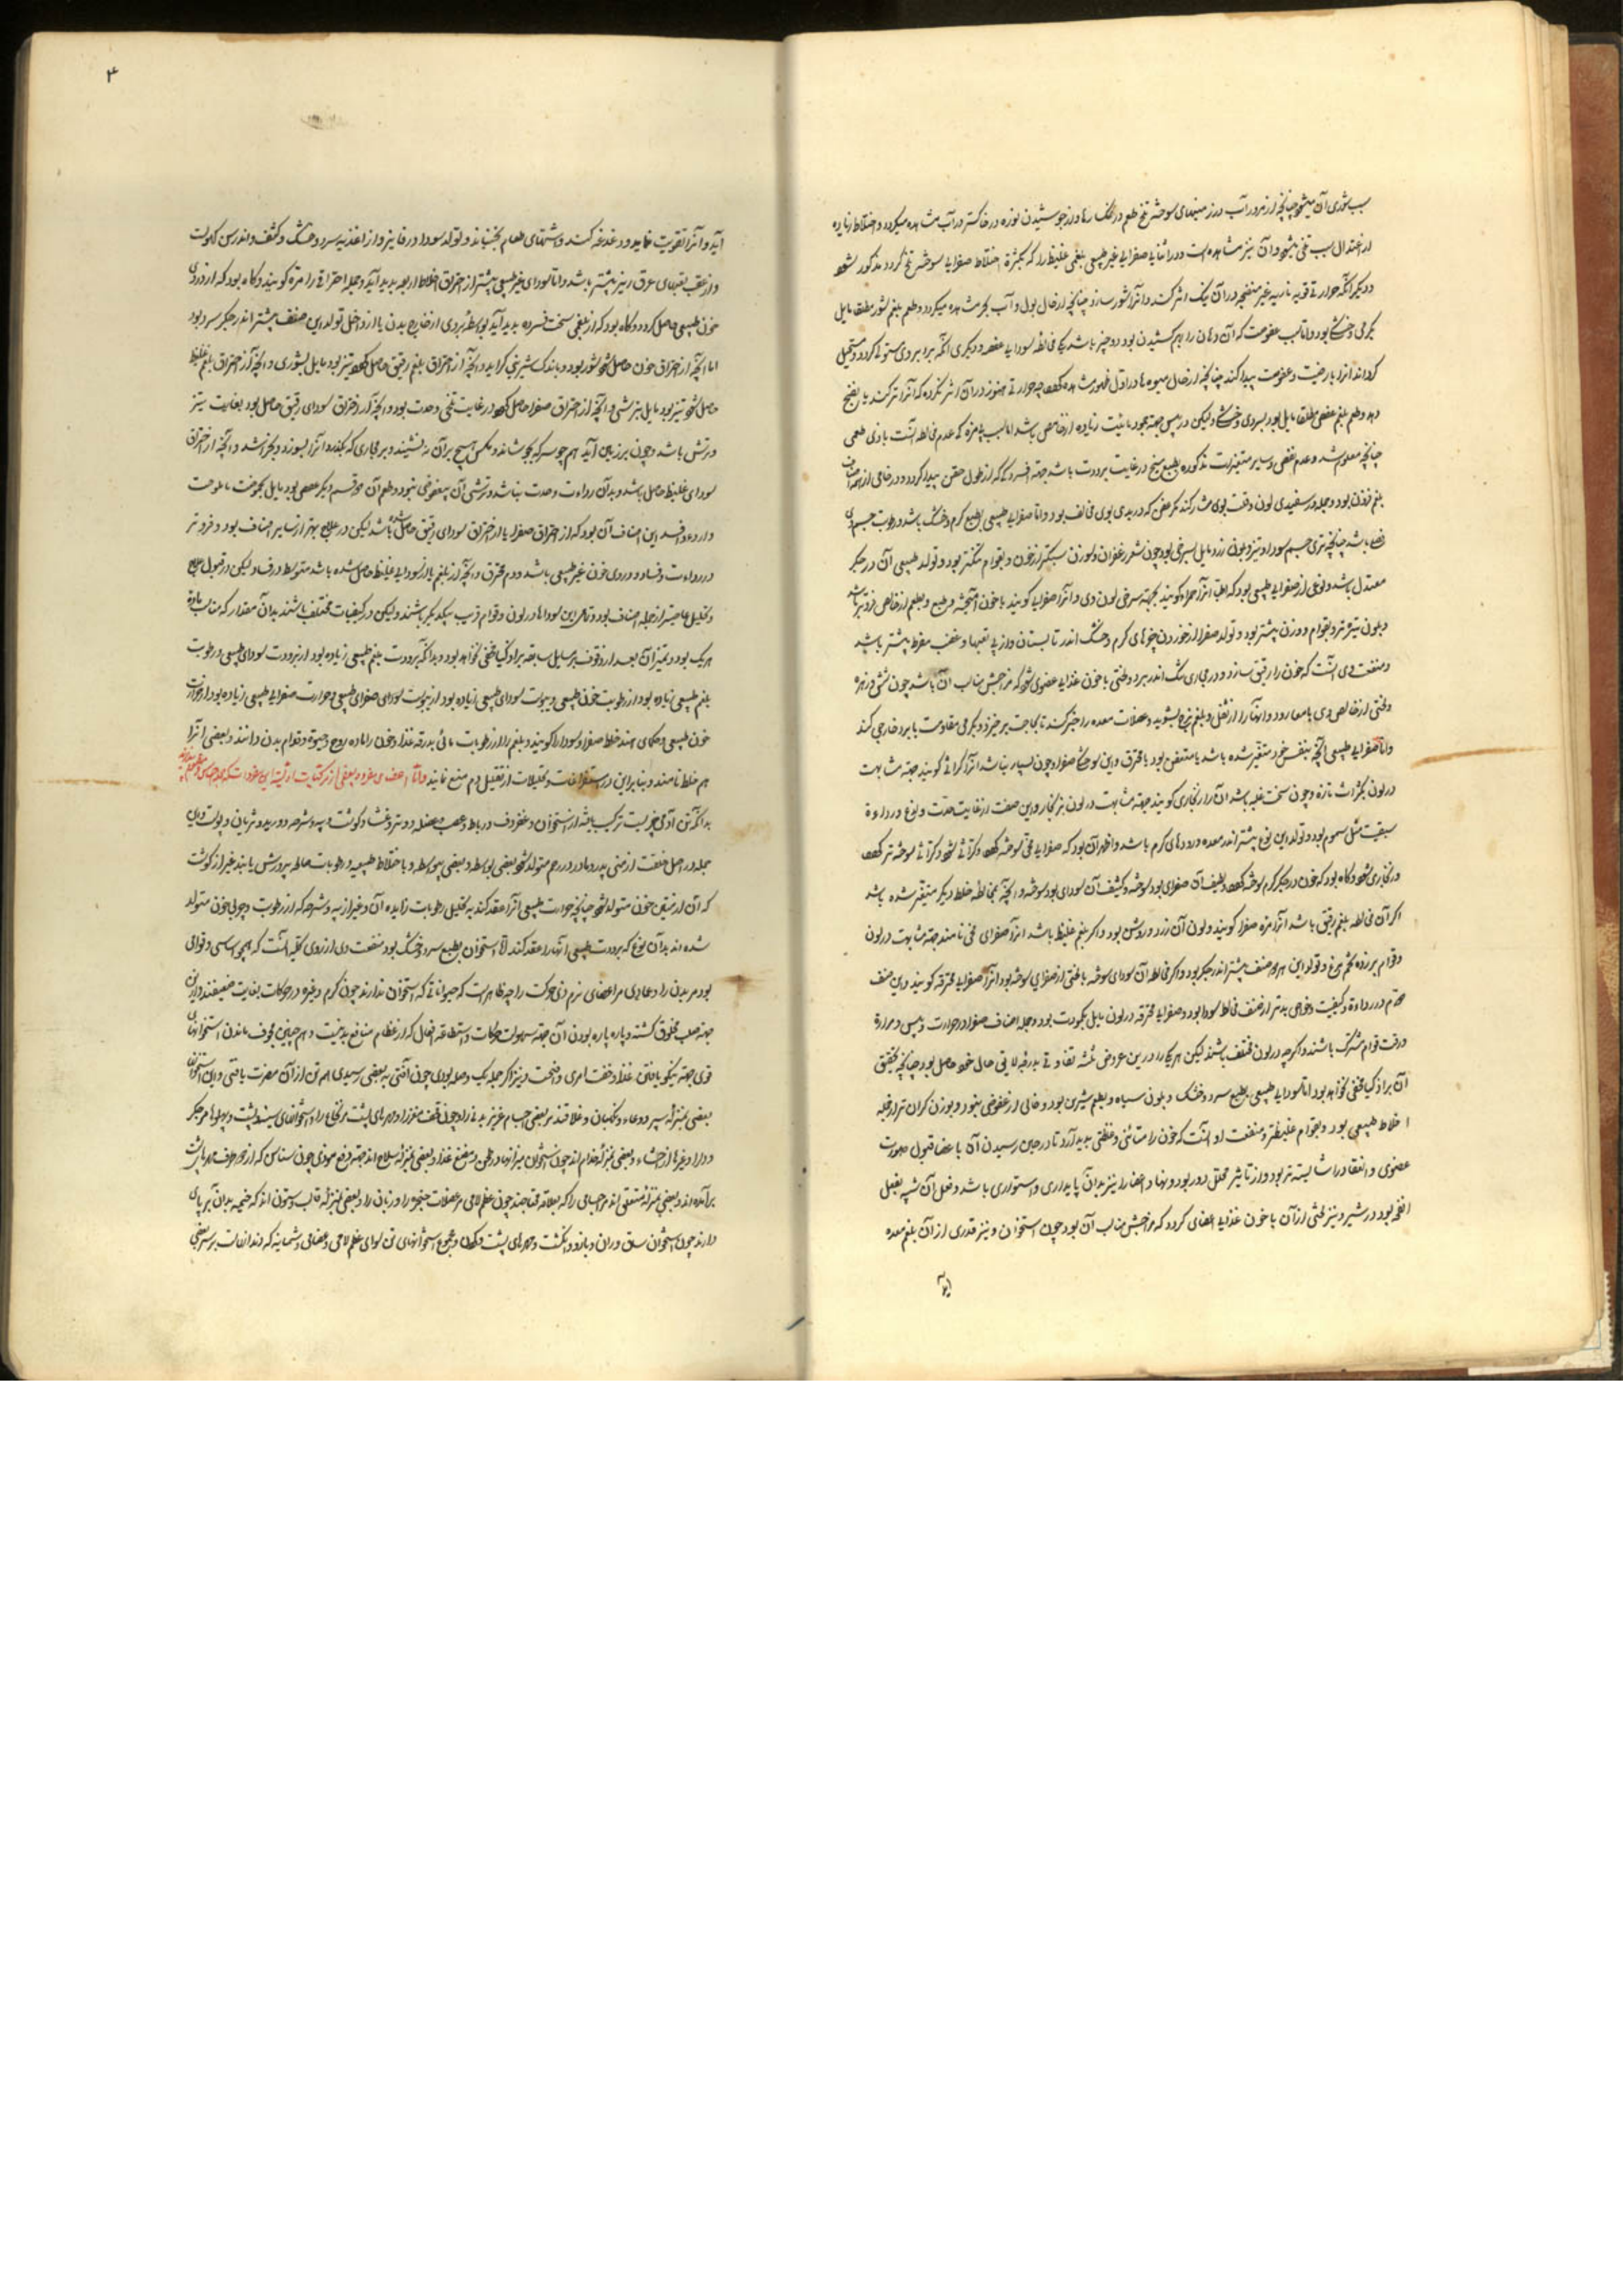 سبب شوری آن میشود چنانچه از مرور آب در زمینهای سوخته تلخ طعم و از جوشیدن نوزه در خاکستر در آب مشاهده میگردد و اختلاط زیاده
از اعتدال سبب تلخی میشود و آن نیز مشاهده است و در اثنای صفرای غیر طبیعی بلغمی غلیظ را که بکثرة اختلاط صفرای سوخته تلخ گردد مذکور شود
و دیگر آنکه حرارتی قویه ناریه غیر منضجه در آن نیک اثر کند و آنرا شور سازد چنانچه از حال بول و آب بحر مشاهده میگردد و طعم بلغم شور مطلقا مایل
بگرمی و خشکی بود و اما سبب عفوصت که آن دهان را بهم کشیدن بود دو چیز باشد یکی مخالطه سودای عفص و دیگری آنکه برد بر وی مستولی گردد و مستحیل
گرداند آنرا بارضیت و عفوصت پیدا کند چنانچه از حال میوه ها در اول ظهور مشاهده که حرارتی هنوز در آن اثر نکرده که آنرا ترکند یا نضج
دهد و طعم بلغم عفص مطلقا مایل بود بسردی و خشکی ولیکن در یبس جهت جمود مائیت زیاده از حامض باشد اما سبب که عدم مخالطه آنست با ذی طعمی
چنانچه معلوم شد و عدم تعفن و سایر متغیرات مذکوره بطبع مسیخ در غایت برودت باشد جهة فسردگی که از طول حقن پیدا گردد و در خامی از همه اصناف
بلغم فزون بود و جمله در سفیدی لون و قلت بوی مشارکند مگر عفن که در بدی بوی مخالف بود و اما صفرای طبیعی بطبع گرم و خشک باشد و رطوبت جسم وی
چنانچه تری جسم سودا و تیز و بلون زرد مایل بسرخی بود چون شعر زعفران و بوزن سبکتر از خون و بقوام تنکتر بود و تولد طبیعی آن در جگر
معتدل باشد و نوعی از صفرای طبیعی بود که اطبا آنرا حمراء گویند بجهة سرخی لون وی و آنرا صفرای گویند با خون آمیخته و بطبع و بطعم از خالص فروتر باشد
و بلون تیره تر و بقوام و وزن بیشتر بود و تولد صفرا از خوردن چیزهای گرم و خشک اندر تابستان و از پی تعبها و غضب مفرط بیشتر باشد
و منفعت وی آنست که خون را رقیق سازد و در مجاری تنک اندر برد و لختی با خون غذای عضوی شود که مزاجش مناسب آن باشد چون شش و زهره
و لختی از خالص وی بامعا رود و آنها را از ثفل و بلغم لزج بشوید و عضلات معده را خبر کند تا بحاجت برخیزد و بگرمی مقاومت با برد خارجی کند
و اما صفرای طبیعی آنچه بنفس خود متغیر شده باشد یا متعفن بود یا محترق و این سوختگی صفرا و چون بسیار نباشد آنرا کراثی گویند جهة مشابهت
در لون بکراث تازه و چون سخت غلبه باشد آن را زنگاری گویند جهة مشابهت در لون بزنگار و این صنف از غایت حدت و لذع و رداءة
بمثل سموم بود و تولد این نوع بیشتر اندر معده و رودهای گرم باشد و ظاهر آن بود که صفرای محی سوخته و کراثی شود و کراثی سوخته تر
و زنگاری شود و گاه بود که خون در جگر گرم سوخته لطیف آن صفرای بود سوخته و کثیف آن سودای بود سوخته و آنچه بمخالطه خلط دیگر متغیر شده باشد
اگر آن مخالطه بلغم رقیق باشد آنرا مرة صفرا گویند و لون آن زرد و روشن بود و اگر بلغم غلیظ باشد آنرا صفرای محی نامند جهة مشابهت در لون
و قوام بزرده تخم مرغ و تولد این هر دو صنف بیشتر اندر جگر بود و اگر مخالط آن سودای سوخته یا لختی از صفرای سوخته بود آنرا صفرای محترقه گویند و این صنف
هم در رداءة و کیفیت و خواص بدتر از صنف مخالط سودا بود و صفرای محترقه در لون مایل بکمودت بود و جمله اصناف صفرا در حرارت و یبس و مرارة
و رقت قوام مشترک باشند و اگر چه در لون مختلف باشند لیکن هر یکی را در این عروض ثلثه تفاوتی بدرجه لایق حال خود حاصل بود چنانچه بتحقیق
آن بر اذکیا مخفی نخواهد بود اما سودای طبیعی بطبع سرد و خشک و بلون سیاه و بطعم شیرین بود و خالی از عفوصتی نبود و بوزن گران تر از جمله
اخلاط طبیعی بود و بقوام غلیظتر و منفعت او آنست که خون را متانتی و غلظتی پدید آرد تا در حین رسیدن آن باعضا قبول صورت
عضوی و انعقاد را شایسته تر بود و از تأثیر محلل دور بود و بنهاد اعضا را نیز بدان پایداری و استواری باشد و فعل آن شبیه بفعل
انفحه بود در شیر و نیز لختی از آن با خون غذای اعضای گردد که مزاجش مناسب آن بود چون استخوان و نیز قدری از آن بفم معده
آید
۳
آید و آنرا تقویت نماید و دغدغه کند و شهوتهای طعام بجنباند و تولد سودا در خاینر و از اغذیه سرد و خشک و کثیف و اندر سن کهولت
و از عقب تعبهای عرق ریز بیشتر باشد و اما سودای غیر طبیعی بیشتر از احتراق اخلاط اربعه پدید آید و جمله احتراقی را مرة گویند و گاه بود که از دردی
خون طبیعی حاصل گردد و گاه بود که از بلغمی سخت فسرده پدید آید بواسطه بردی از خارج بدن یا از داخل تولد این صنف بیشتر اندر جگر سرد بود
اما آنچه از احتراق خون حاصل شود شور بود و باندک شیرینی گراید و آنچه از احتراق بلغم رقیق حاصل تیز بود مایل بشوری و آنچه از احتراق بلغم غلیظ
حاصل شود تیز بود مایل بترشی و آنچه از احتراق صفرا حاصل در غایت تلخی و حدت بود و آنچه از احتراق سودای رقیق حاصل بود بغایت تیز
و ترش باشد و چون بر زمین آید هم چو سرکه بجوشاند و مگس هیچ بر آن ننشیند و بر مجاری که بگذرد آنرا بسوزد و بخراشد و آنچه از احتراق
سودای غلیظ حاصل باشد و بدان رداءت و حدت نباشد و ترشی آن بی عفوصتی نبود و طعم آن هر قسم دیگر عفص بود مایل بحموضت یا ملوحت
و اردء و افسد این اصناف آن بود که از احتراق صفرا یا از احتراق سودای رقیق حاصل شده باشد لیکن در علاج بهتر از سایر اصناف بود و فروتر
در رداءت و فساد دردی خون غیر طبیعی باشد و دم محترق و آنچه از بلغم یا از سودای غلیظ حاصل شده باشد متوسط در فساد ولیکن در قبول علاج
و تحلیل عاصیتر از جمله اصناف بود و تمامی این سوداها در لون و قوام قریب بیکدیگر باشند ولیکن در کیفیات مختلف باشند بدان مقدار که مناسب ماده
هر یک بود و تمیز آن بعد از وقوف بر مسایل سابقه بر اذکیا مخفی نخواهد بود و بدانکه برودت بلغم طبیعی زیاده بود از برودت سودای طبیعی و رطوبت
بلغم طبیعی زیاده بود از رطوبت خون طبیعی و یبوست سودای طبیعی زیاده بود از یبوست صفرای طبیعی و حرارت صفرای طبیعی زیاده بود از حرارت
خون طبیعی و حکمای هند خلط صفرا و سودا را گویند و بلغم را از رطوبات مائی بدرقه غذا و خون را ماده روح و حیوة و قوام بدن دانند و بعضی آنرا
هم خلط نامند و بنابراین در استفراغات و تحلیلات از تقلیل دم منع نمایند و اما اعضای مفرده و بعضی از مرکبات اولیه این مفردات که
بدانکه تن آدمی چیزیست ترکیب یافته از استخوان و غضروف و رباط و عصب و عضله و وتر و غشا و گوشت و پیه و شرحه و ورید و شریان و پوست و این
جمله در اصل خلقت از منی پدر و مادر در رحم متولد شود بعضی بواسطه و بعضی بی واسطه و باختلاط طبیعیه و رطوبات صالحه پرورش یابند غیر از گوشت
که آن از متین خون متولد شود چنانچه حرارت طبیعی آنرا عقد کند به تحلیل رطوبات زایده آن و غیر از پیه و شرحه که از رطوبت و چربی خون متولد
شده اند بدان نوع که برودت طبیعی آنها را عقد کند اما استخوان بطبع سرد و خشک بود منفعت وی از روی کلیه آنست که همچو اساسی و قوامی
بود مر بدن را و عمادی مر اعضای نرم ذی حرکت را چه ظاهر است که حیواناتی که استخوان ندارند چون کرم و غیره در حرکات بغایت ضعیفند و این
جهة صلب مخلوق گشته و پاره پاره بودن آن جهة سهولت حرکات و استطاعة افعال که از عظام منافع بدنیست و هم چنین مجوف ماندن استخوانهای
قوی جهة نیکو یافتن غذا و خفت امری واضحست و نیز اگر جمله یک وصله بودی چون آفتی به بعضی رسیدی همه تن از آن مضرت یافتی و این استخوان
بعضی بمنزله سپر و وعاء و نگهبان و غلافند مر بعضی اجسام عزیز بدنی را و چون قحف مغز را و مهره های پشت مر نخاع را و استخوانهای سینه و پشت و پهلوها مر جگر
و دل را و غیرها از احشاء و بعضی بمنزله خدام اند چون استخوان و مضغ غذا و بعضی بمنزله سلاح اند جهة دفع موذی چون سناسن که از خرد مهره های پشت
برآمده اند و بعضی بمنزله متعلق اند مر اجسامی را که بعلاقه محتاجند چون عظم لامی مر عضلات حنجره را و زبان را و بعضی بمنزله قالب و ستون اند که خیمه بدان بر پای
دارند چون استخوان ساق و ران و بازو و انگشت و مهره های پشت و جمجمه و مجموع استخوانهای تن سوای عظم لامی و عظامی و سمسانیه که دندانهاست بر سر بعضی